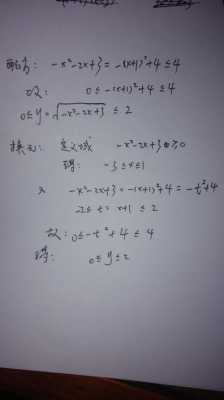 配方: -x²-2x+3 = -(x+1)²+4 ≤4
故: 0≤ -(x+1)²+4 ≤4
0≤y=√(-x²-2x+3) ≤ 2
换元: 定义域 -x²-2x+3≥0
得: -3≤x≤1
-x²-2x+3=-(x+1)²+4 = -t²+4
-2≤ t= x+1 ≤ 2
故: 0≤ -t²+4 ≤ 4
得: 0≤y≤2